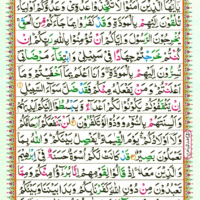 يٰۤاَيُّهَا الَّذِيْنَ اٰمَنُوْا لَا تَتَّخِذُوْا عَدُوِّيْ وَعَدُوَّكُمْ اَوْلِيَآءَ
تُلْقُوْنَ اِلَيْهِمْ بِالْمَوَدَّةِ وَقَدْ كَفَرُوْا بِمَا جَآءَكُمْ مِّنَ الْحَقِّ
يُخْرِجُوْنَ الرَّسُوْلَ وَاِيَّاكُمْ اَنْ تُؤْمِنُوْا بِاللّٰهِ رَبِّكُمْ اِنْ
كُنْتُمْ خَرَجْتُمْ جِهَادًا فِيْ سَبِيْلِيْ وَابْتِغَآءَ مَرْضَاتِيْ
تُسِرُّوْنَ اِلَيْهِمْ بِالْمَوَدَّةِ وَاَنَا اَعْلَمُ بِمَاۤ اَخْفَيْتُمْ وَمَاۤ
اَعْلَنْتُمْ وَمَنْ يَّفْعَلْهُ مِنْكُمْ فَقَدْ ضَلَّ سَوَآءَ السَّبِيْلِ
اِنْ يَّثْقَفُوْكُمْ يَكُوْنُوْا لَكُمْ اَعْدَآءً وَّيَبْسُطُوْۤا اِلَيْكُمْ
اَيْدِيَهُمْ وَاَلْسِنَتَهُمْ بِالسُّوْٓءِ وَوَدُّوْا لَوْ تَكْفُرُوْنَ لَنْ تَنْفَعَكُمْ
اَرْحَامُكُمْ وَلَاۤ اَوْلَادُكُمْ يَوْمَ الْقِيٰمَةِ يَفْصِلُ بَيْنَكُمْ وَاللّٰهُ بِمَا
تَعْمَلُوْنَ بَصِيْرٌ قَدْ كَانَتْ لَكُمْ اُسْوَةٌ حَسَنَةٌ فِيْۤ اِبْرٰهِيْمَ
وَالَّذِيْنَ مَعَهٗ اِذْ قَالُوْا لِقَوْمِهِمْ اِنَّا بُرَءٰٓؤُا مِنْكُمْ وَمِمَّا
تَعْبُدُوْنَ مِنْ دُوْنِ اللّٰهِ كَفَرْنَا بِكُمْ وَبَدَا بَيْنَنَا وَبَيْنَكُمُ